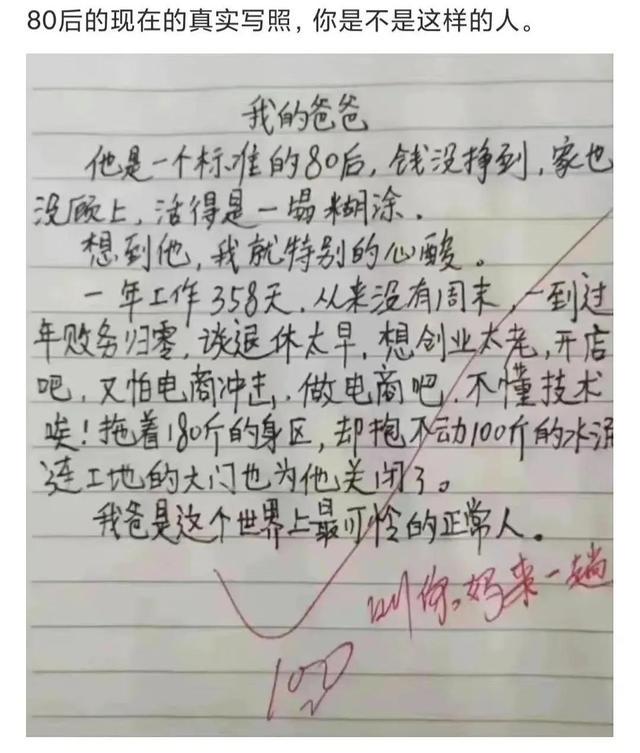 80后的现在的真实写照，你是不是这样的人。
我的爸爸
他是一个标准的80后，钱没挣到，家也
没顾上，活得是一塌糊涂．
想到他，我就特别的心酸。
一年工作358天．从来没有周末，一到过
年败务归零，谈退休太早，想创业太老，开店
吧，又怕电商冲击，做电商吧，不懂技术
唉！拖着180斤的身区，却抱不动100斤的水泥
连工地的大门也为他关闭了。
我爸是这个世界上最可怜的正常人。
叫你妈来一趟
100